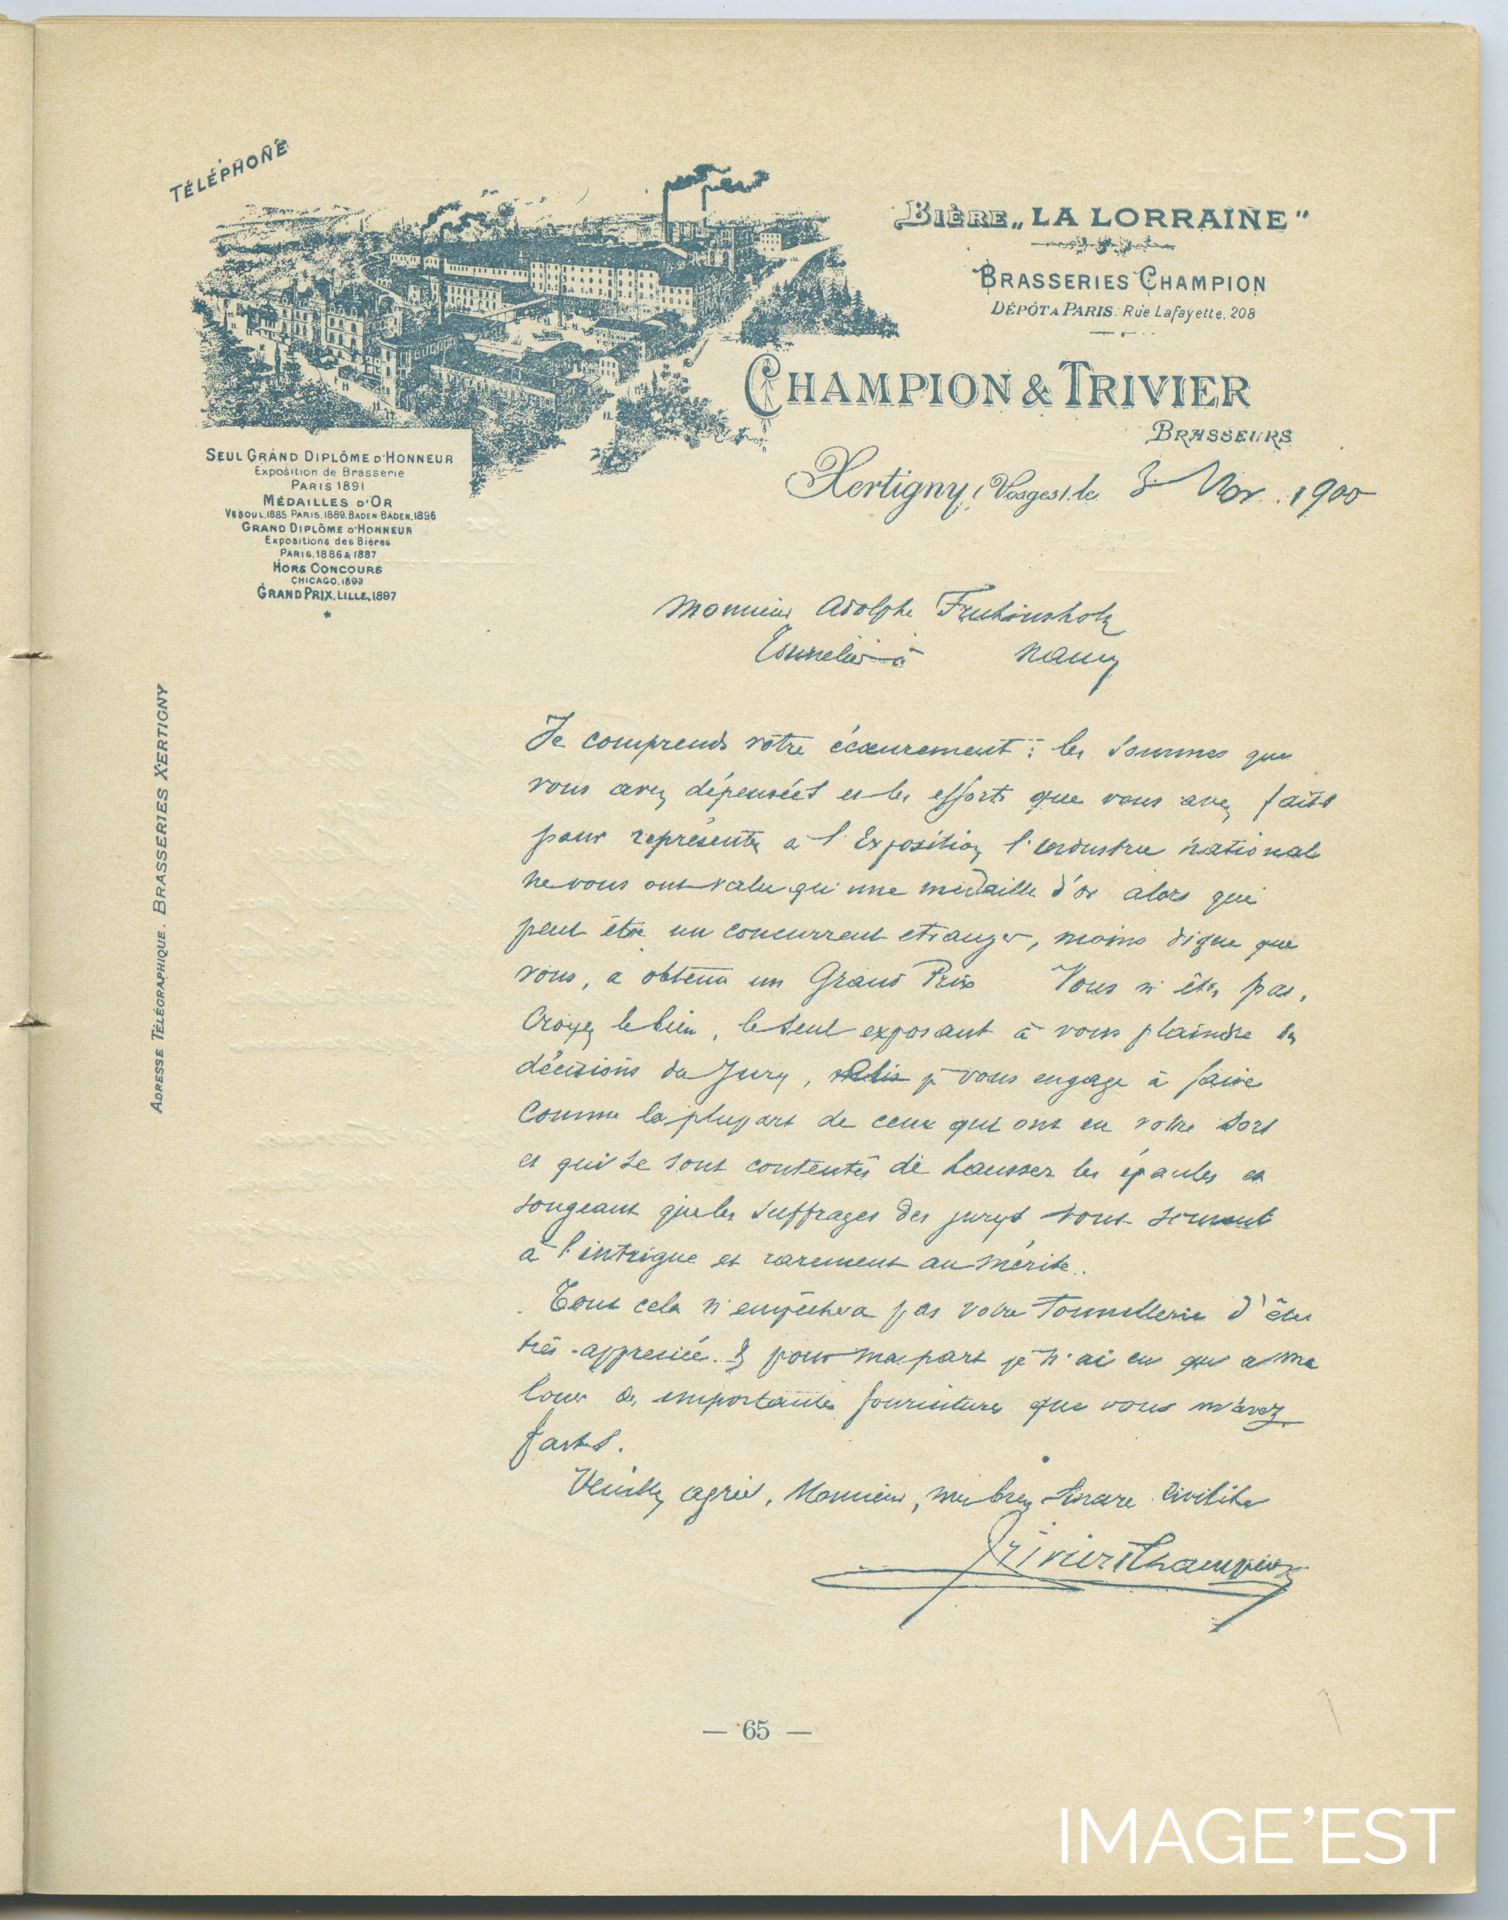 TÉLÉPHONE
BIÈRE „LA LORRAINE"
BRASSERIES CHAMPION
DÉPÔT A PARIS. Rue Lafayette, 208
CHAMPION & TRIVIER
BRASSEURS
Xertigny (Vosges), le 3 Nov. 1900
SEUL GRAND DIPLÔME D'HONNEUR
Exposition de Brasserie
PARIS 1891
MÉDAILLES D'OR
VESOUL,1885 PARIS,1889. BADEN BADEN,1896
GRAND DIPLÔME D'HONNEUR
Expositions des Bières
PARIS,1886 & 1887
HORS CONCOURS
CHICAGO,1893
GRAND PRIX, LILLE, 1897
ADRESSE TÉLÉGRAPHIQUE. BRASSERIES XERTIGNY
Monsieur Adolphe Fruhinsholz
Tonnelier à Nancy
Je comprends votre écœurement : les sommes que
vous avez dépensées et les efforts que vous avez faits
pour représenter à l'Exposition l'industrie nationale
ne vous ont valu qu'une médaille d'or alors que
peut être un concurrent etranger, moins digne que
vous, a obtenu un Grand Prix Vous n'êtes pas,
Croyez le bien, le seul exposant à vous plaindre des
décisions du Jury, je vous engage à faire
Comme la plupart de ceux qui ont eu votre sort
et qui se sont contentés de hausser les épaules en
songeant que les suffrages des jurys vont
à l'intrigue et rarement au mérite.
Tout cela n'empêchera pas votre Tonnellerie d'être
très-appréciée. Et pour ma part je n'ai eu qu'a me
louer des importantes fournitures que vous m'avez
faites.
Veuillez agréer, Monsieur, mes bien sincères civilités
Trivier Champion
— 65 —
IMAGE'EST